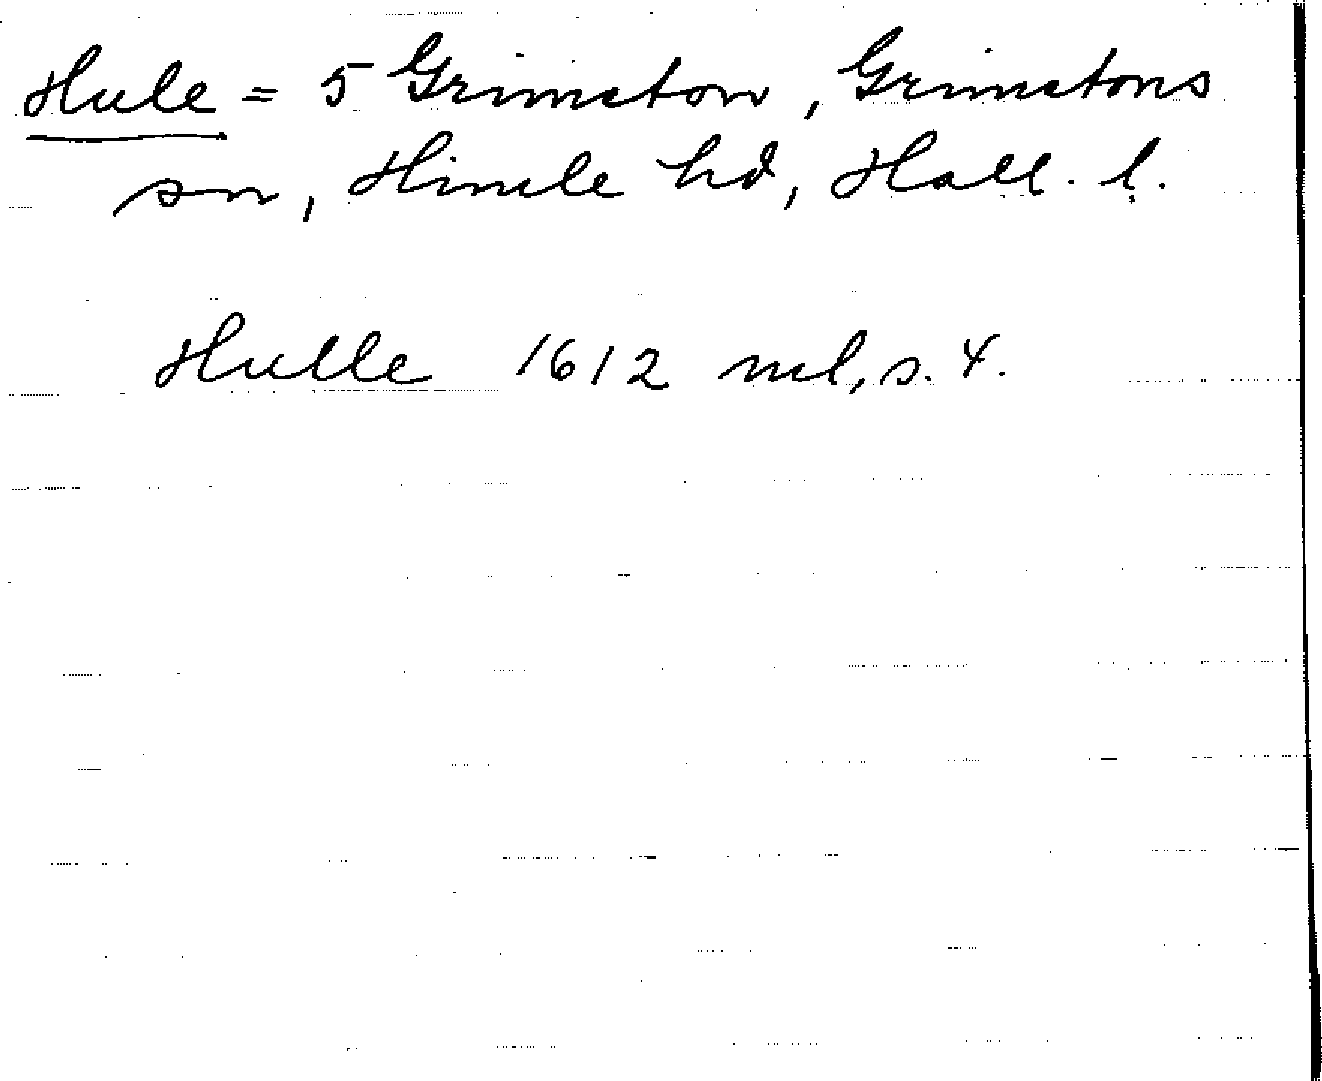 Hule = 5 Grimeton, Grimetons
sn, Himle hd, Hall. l.
Hulle 1612 ml, s. 4.